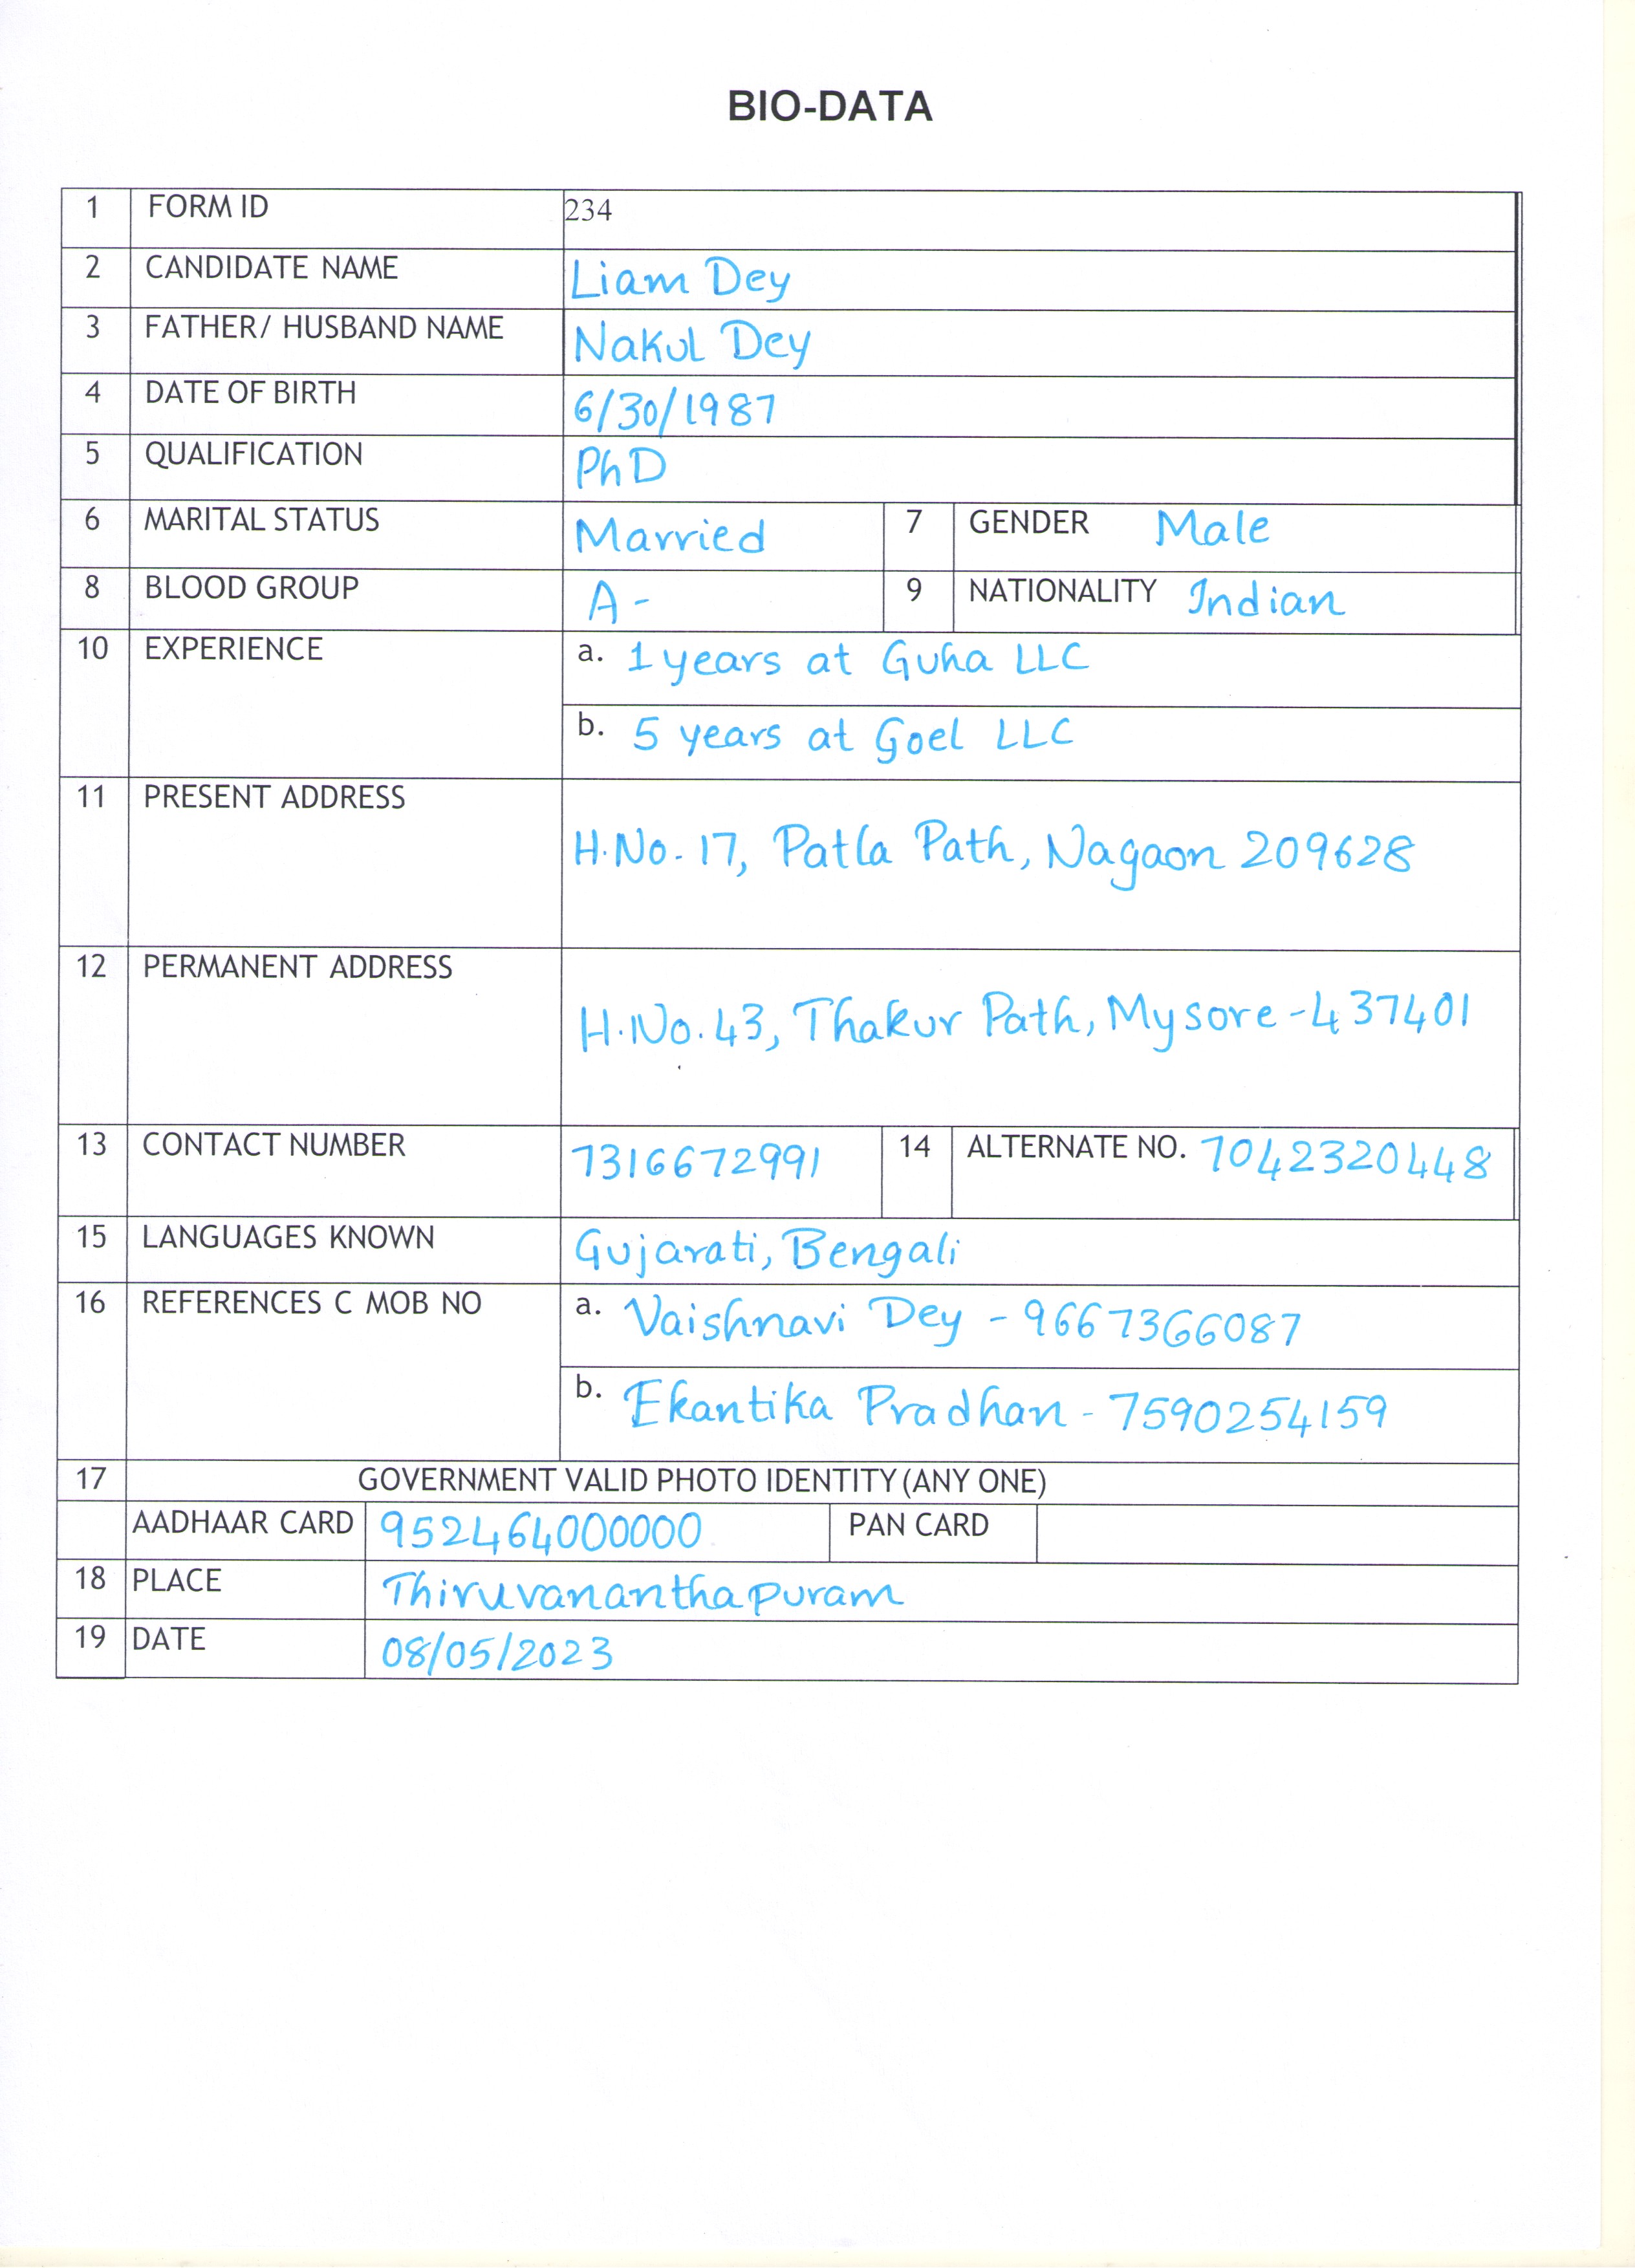 BIO-DATA
1 FORM ID 234
2 CANDIDATE NAME Liam Dey
3 FATHER/ HUSBAND NAME Nakul Dey
4 DATE OF BIRTH 6/30/1987
5 QUALIFICATION PhD
6 MARITAL STATUS Married 7 GENDER Male
8 BLOOD GROUP A- 9 NATIONALITY Indian
10 EXPERIENCE a. 1 years at Guha LLC
b. 5 years at Goel LLC
11 PRESENT ADDRESS
H.No. 17, Patla Path, Nagaon 209628
12 PERMANENT ADDRESS
H.No. 43, Thakur Path, Mysore-437401
13 CONTACT NUMBER 7316672991 14 ALTERNATE NO. 7042320448
15 LANGUAGES KNOWN Gujarati, Bengali
16 REFERENCES C MOB NO a. Vaishnavi Dey - 9667366087
b. Ekantika Pradhan - 7590254159
17 GOVERNMENT VALID PHOTO IDENTITY (ANY ONE)
AADHAAR CARD 952464000000 PAN CARD
18 PLACE Thiruvananthapuram
19 DATE 08/05/2023